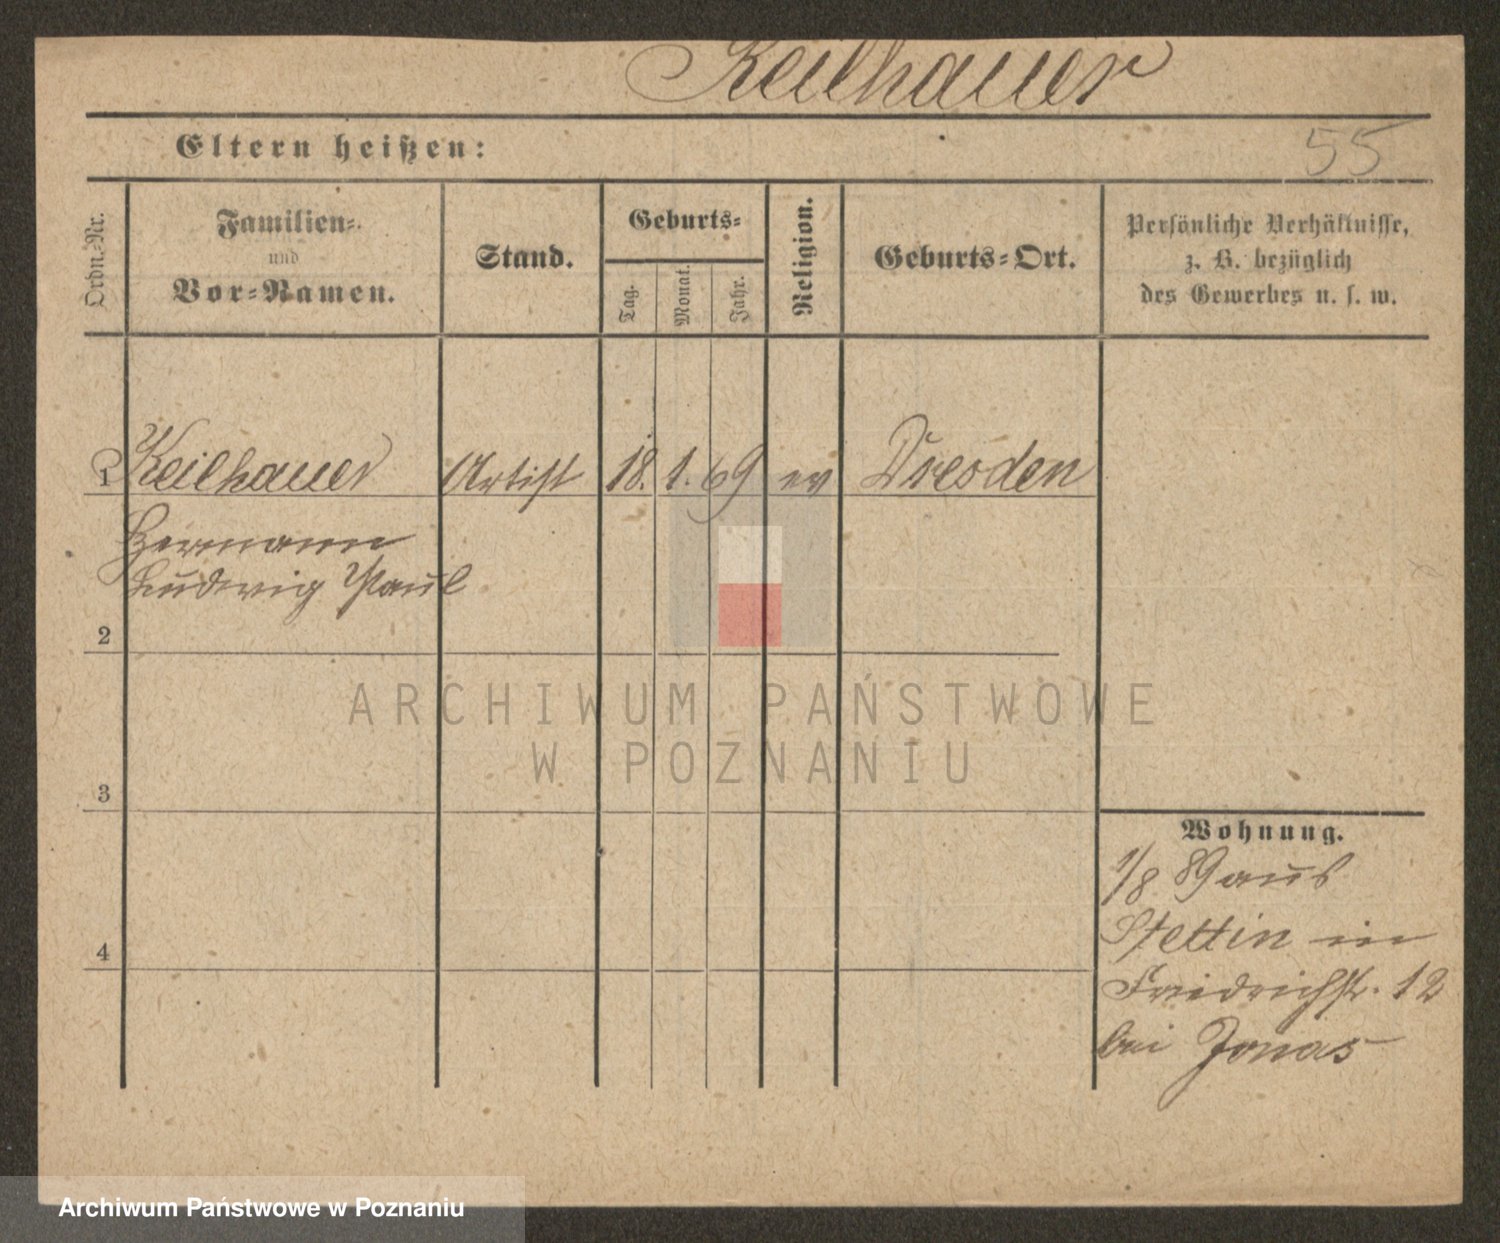 Keilhauer
Eltern heißen:
55
Ordn.-Nr.
Familien-
und
Vor-Namen.
Stand.
Geburts-
Tag.
Monat.
Jahr.
Religion.
Geburts-Ort.
Persönliche Verhältnisse,
z. B. bezüglich
des Gewerbes u. s. w.
1 Keilhauer Artist 18. 1. 69 ev Dresden
Hermann
Ludwig Paul
2
ARCHIWUM PAŃSTWOWE
W POZNANIU
3
Wohnung.
1/8 89 aus
Stettin in
4
Friedrichstr. 12
bei Jonas
Archiwum Państwowe w Poznaniu